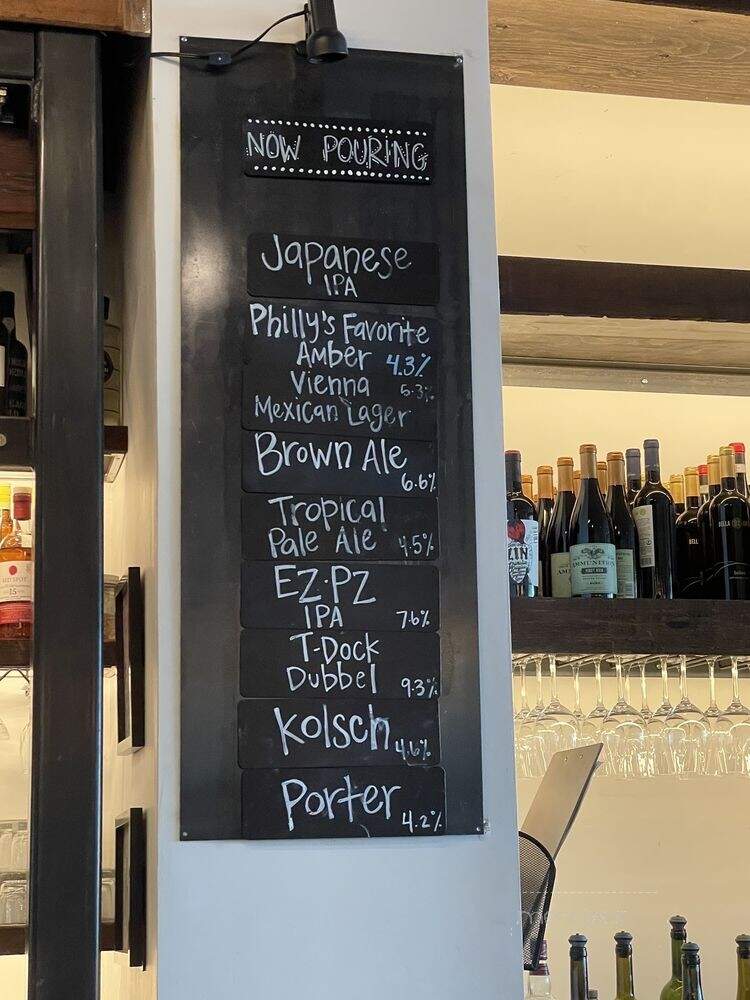 NOW POURING
Japanese
IPA
Philly's Favorite
Amber 4.3%
Vienna 5.3%
Mexican Lager
Brown Ale
6.6%
Tropical
Pale Ale 4.5%
EZ·PZ
IPA 7.6%
T-Dock
Dubbel 9.3%
Kolsch 4.6%
Porter 4.2%
RED SPOT
15
ZIN
AMMUNITION
BELLA
BELLA